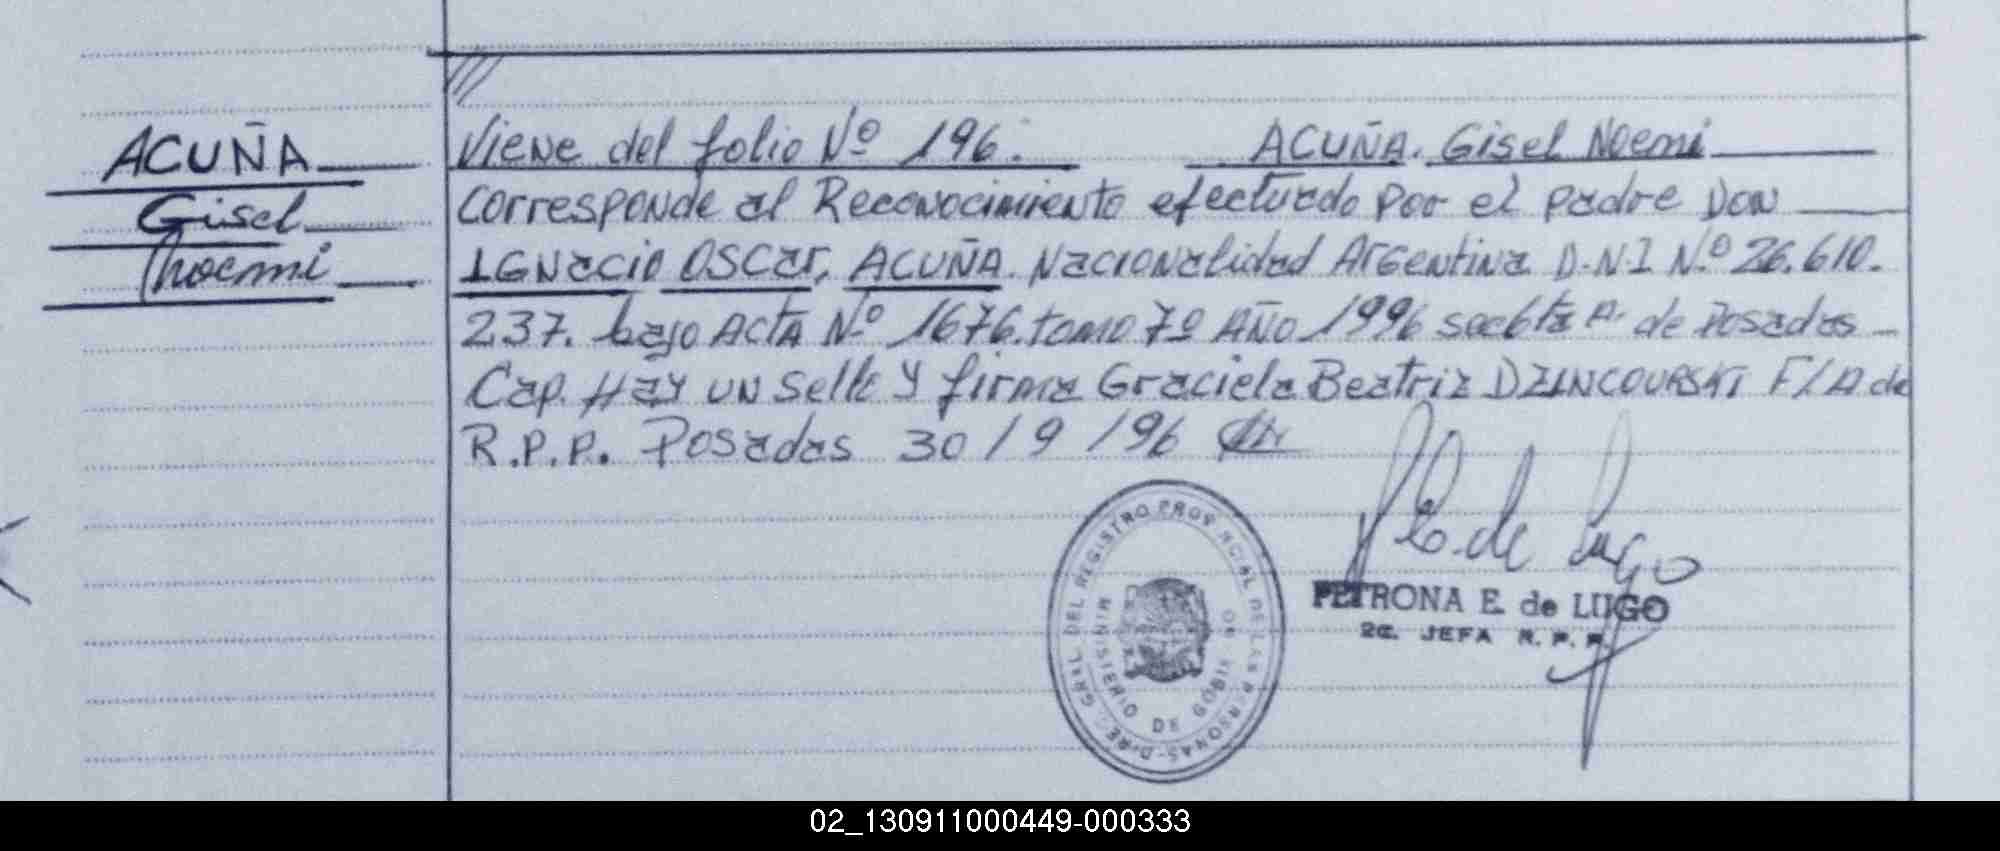 ACUÑA
Gisel
Noemi
Viene del folio Nº 196. ACUÑA. Gisel Noemi
Corresponde al Reconocimiento efectuado por el padre Don
IGNacio OSCar, ACUÑA. Nacionalidad Argentina D.N.I Nº 26.610.
237. bajo Acta Nº 1676. tomo 7º Año 1996 de Posadas
Cap. Hay un sello y firma Graciela Beatriz DZINCOURSKI F/A de
R.P.P. Posadas 30/9/96
E. de Lugo
PETRONA E. de LUGO
2a. JEFA R. P. P.
GRAL DEL REGISTRO PROVINCIAL DE LAS PERSONAS
MINISTERIO DE GOBIERNO
02_130911000449-000333